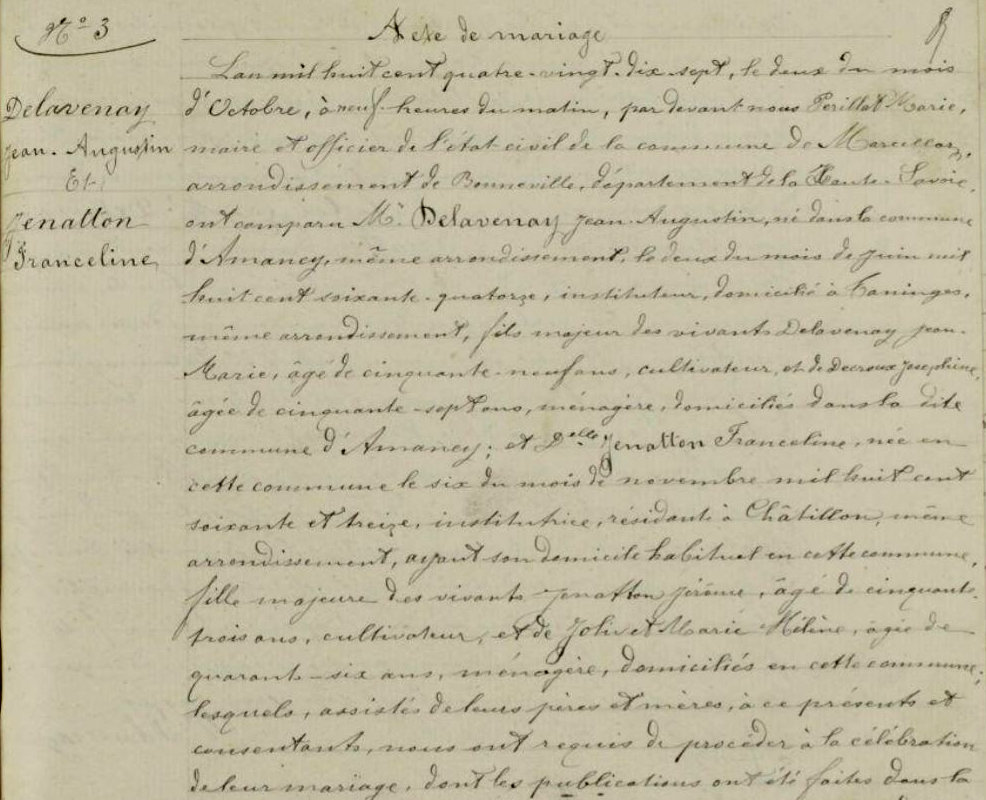 N.o 3
Acte de mariage
Delavenay
Jean-Augustin
Et
Jenatton
Franceline
L'an mil huit cent quatre-vingt-dix-sept, le deux du mois
d'Octobre, à neuf heures du matin, par devant nous Perillat Marie,
maire et officier de l'état civil de la commune de Marcellaz,
arrondissement de Bonneville, département de la Haute-Savoie,
ont comparu Mr Delavenay Jean-Augustin, né dans la commune
d'Amancy, même arrondissement, le deux du mois de Juin mil
huit cent soixante-quatorze, instituteur, domicilié à Taninges,
même arrondissement, fils majeur des vivants Delavenay Jean-
Marie, âgé de cinquante-neuf ans, cultivateur, et de Decroux Josephine,
âgée de cinquante-sept ans, ménagère, domiciliés dans la dite
commune d'Amancy; et Delle Jenatton Franceline, née en
cette commune le six du mois de novembre mil huit cent
soixante et treize, institutrice, résidant à Châtillon, même
arrondissement, ayant son domicile habituel en cette commune,
fille majeure des vivants Jenatton Jérôme, âgé de cinquante-
trois ans, cultivateur, et de Jolivet Marie Hélène, âgée de
quarante-six ans, ménagère, domiciliés en cette commune;
lesquels, assistés de leurs pères et mères, à ce présents et
consentants, nous ont requis de procéder à la célébration
de leur mariage, dont les publications ont été faites dans la